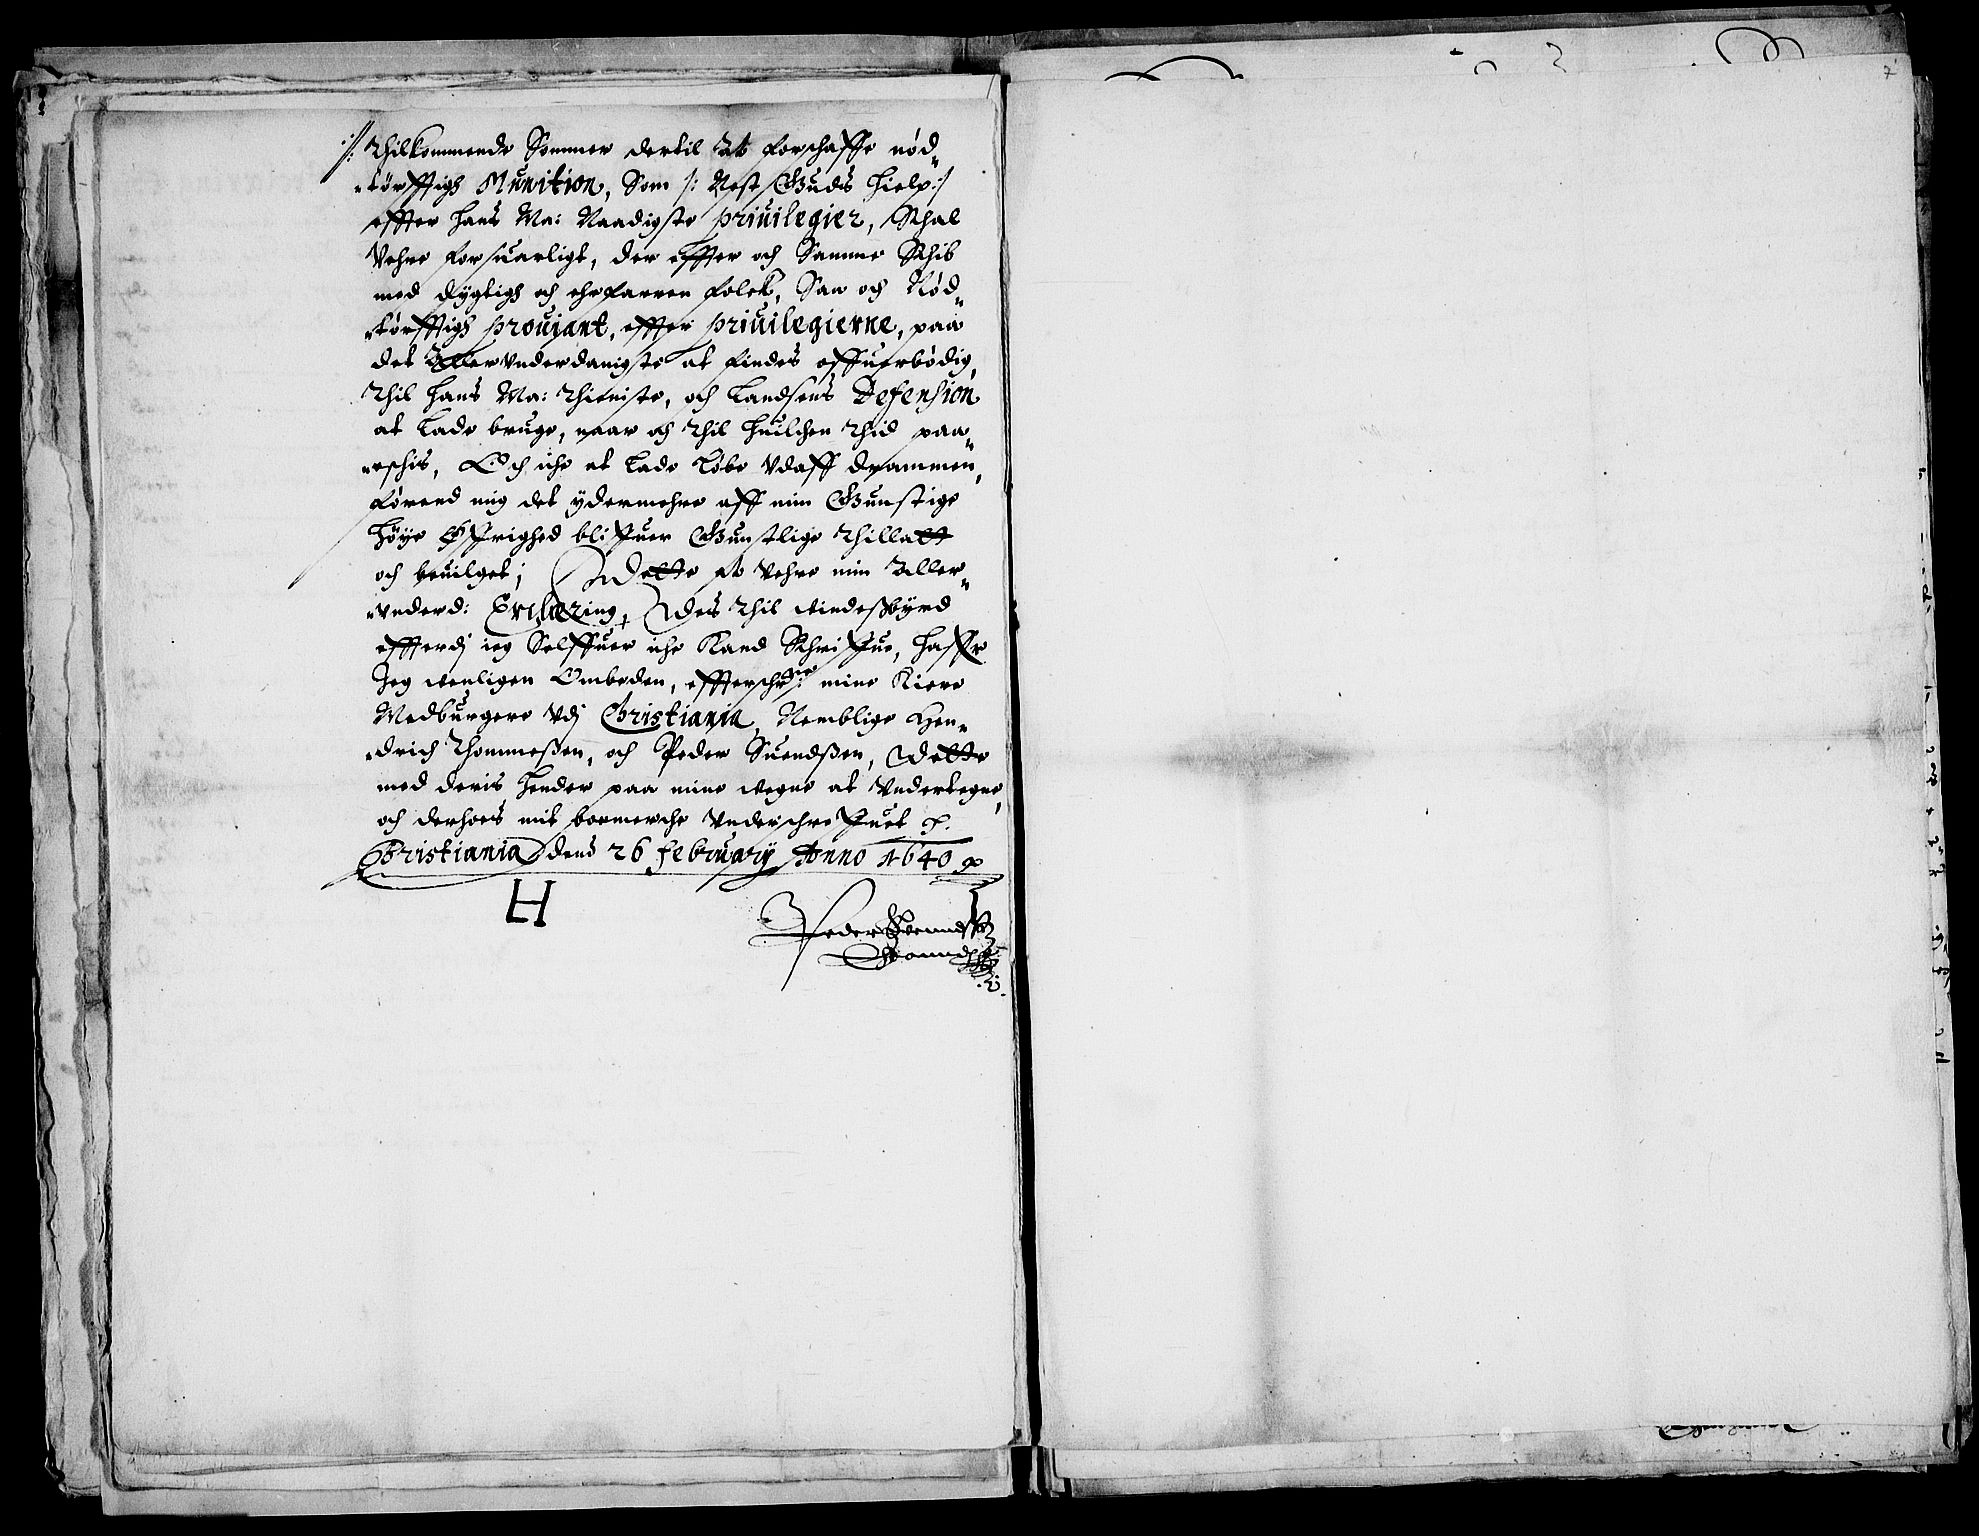 :/: Thilkommende Sommer dertil at forschaffe nød„
„tørfftigh Munition, Som /: Nest Guds hielp :/
effter hans Ma: Naadigste priuilegier, Schal
Vehre forsuarligt, der effter och Samme Schib
med dygtigh och ehrfarren folck, Saa och Nød„
„tørfftigh prouiant, effter priuilegierne, paa
det Allervnderdanigste at findes offuerbødig,
Thil hans Ma: Thieniste, och Landsens Defension
at Lade bruge, naar och Thil huilchen Thid paa„
„eschis, Och iche at Lade Løbe Vdaff Drammen,
førend mig det ydermehre aff min Gunstige
høye Øffrighed bliffuer Gunstlige Thilladt
och beuilget; Dette at Vehre min Aller„
„vnderd: Erclæring, Des Thil vindesbyrd
effterdj ieg Selffuer iche Kand Schriffue, haffr
Jeg venligen Ombeden, effterschr: mine Kiere
Medburgere Vdj Christiania, Nemblige Hen„
„drich Thommeßen, och Peder Suendßen, Dette
med deris hender paa mine vegne at Vndertegne,
och derhoes mit bomerche Vnderschreffuet p.
Christiania dend 26 february Anno 1640 p
H
Peder Suendß